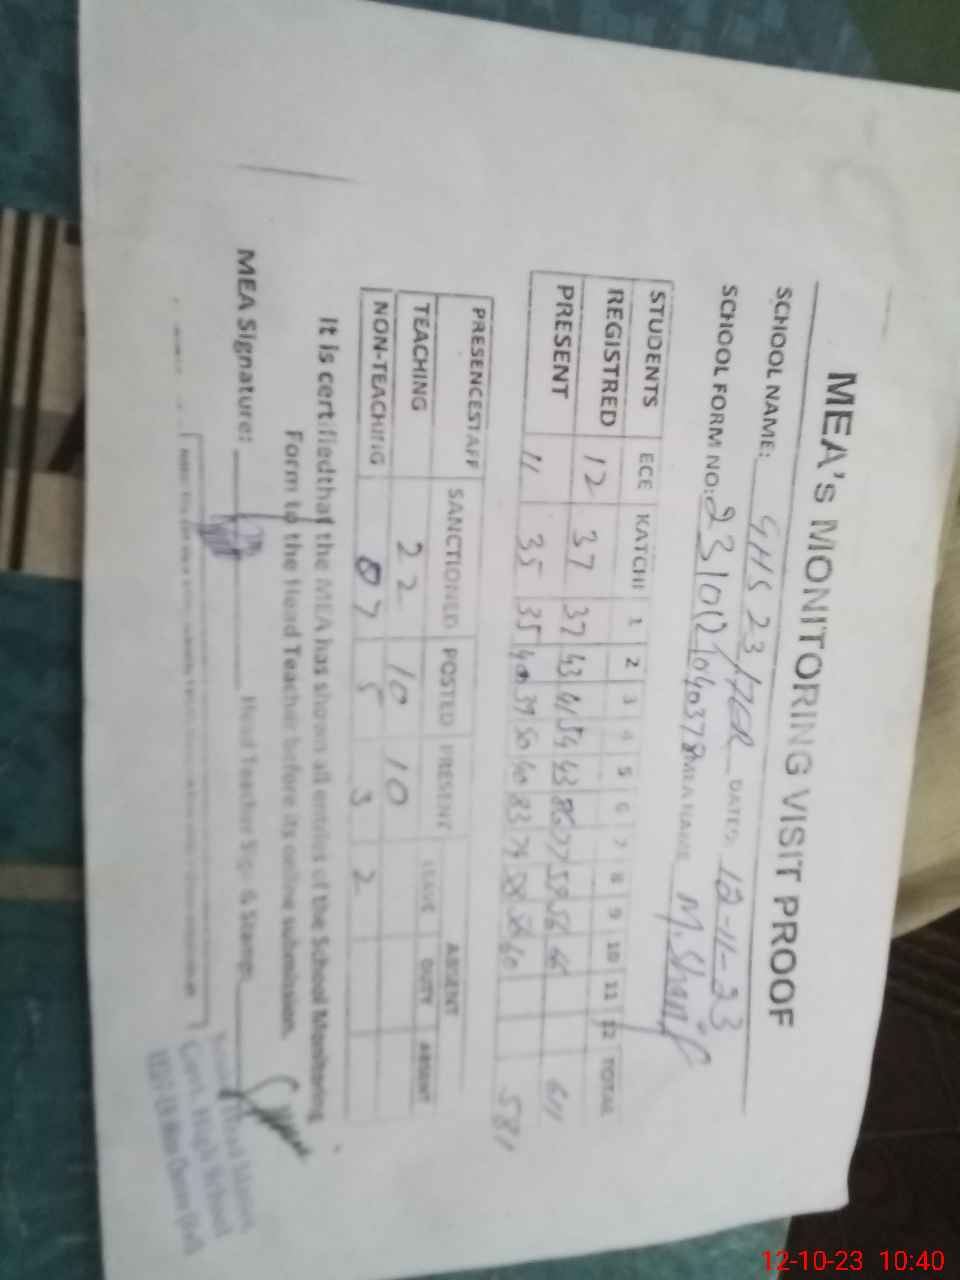 MEA's MONITORING VISIT PROOF
SCHOOL NAME: GHS 23/ DATED: 12-11-23
SCHOOL FORM NO: MEA NAME M. Sharif
STUDENTS ECE KATCHI 1 2 3 4 5 6 7 8 9 10 11 12 TOTAL
REGISTRED 12 37 37 43 41 54 43 86 77 59 56 66 611
PRESENT 11 35 35 40 39 50 40 83 74 58 56 60 581
PRESENCESTAFF SANCTIONED POSTED PRESENT ABSENT
LEAVE DUTY ABSENT
TEACHING 22 10 10
NON-TEACHING 07 5 3 2
It is certifiedthat the MEA has shown all entries of the School Monitoring
Form to the Head Teacher before its online submission.
MEA Signature: Head Teacher Sig: & Stamp
Head Master
Govt. High School
12-10-23 10:40